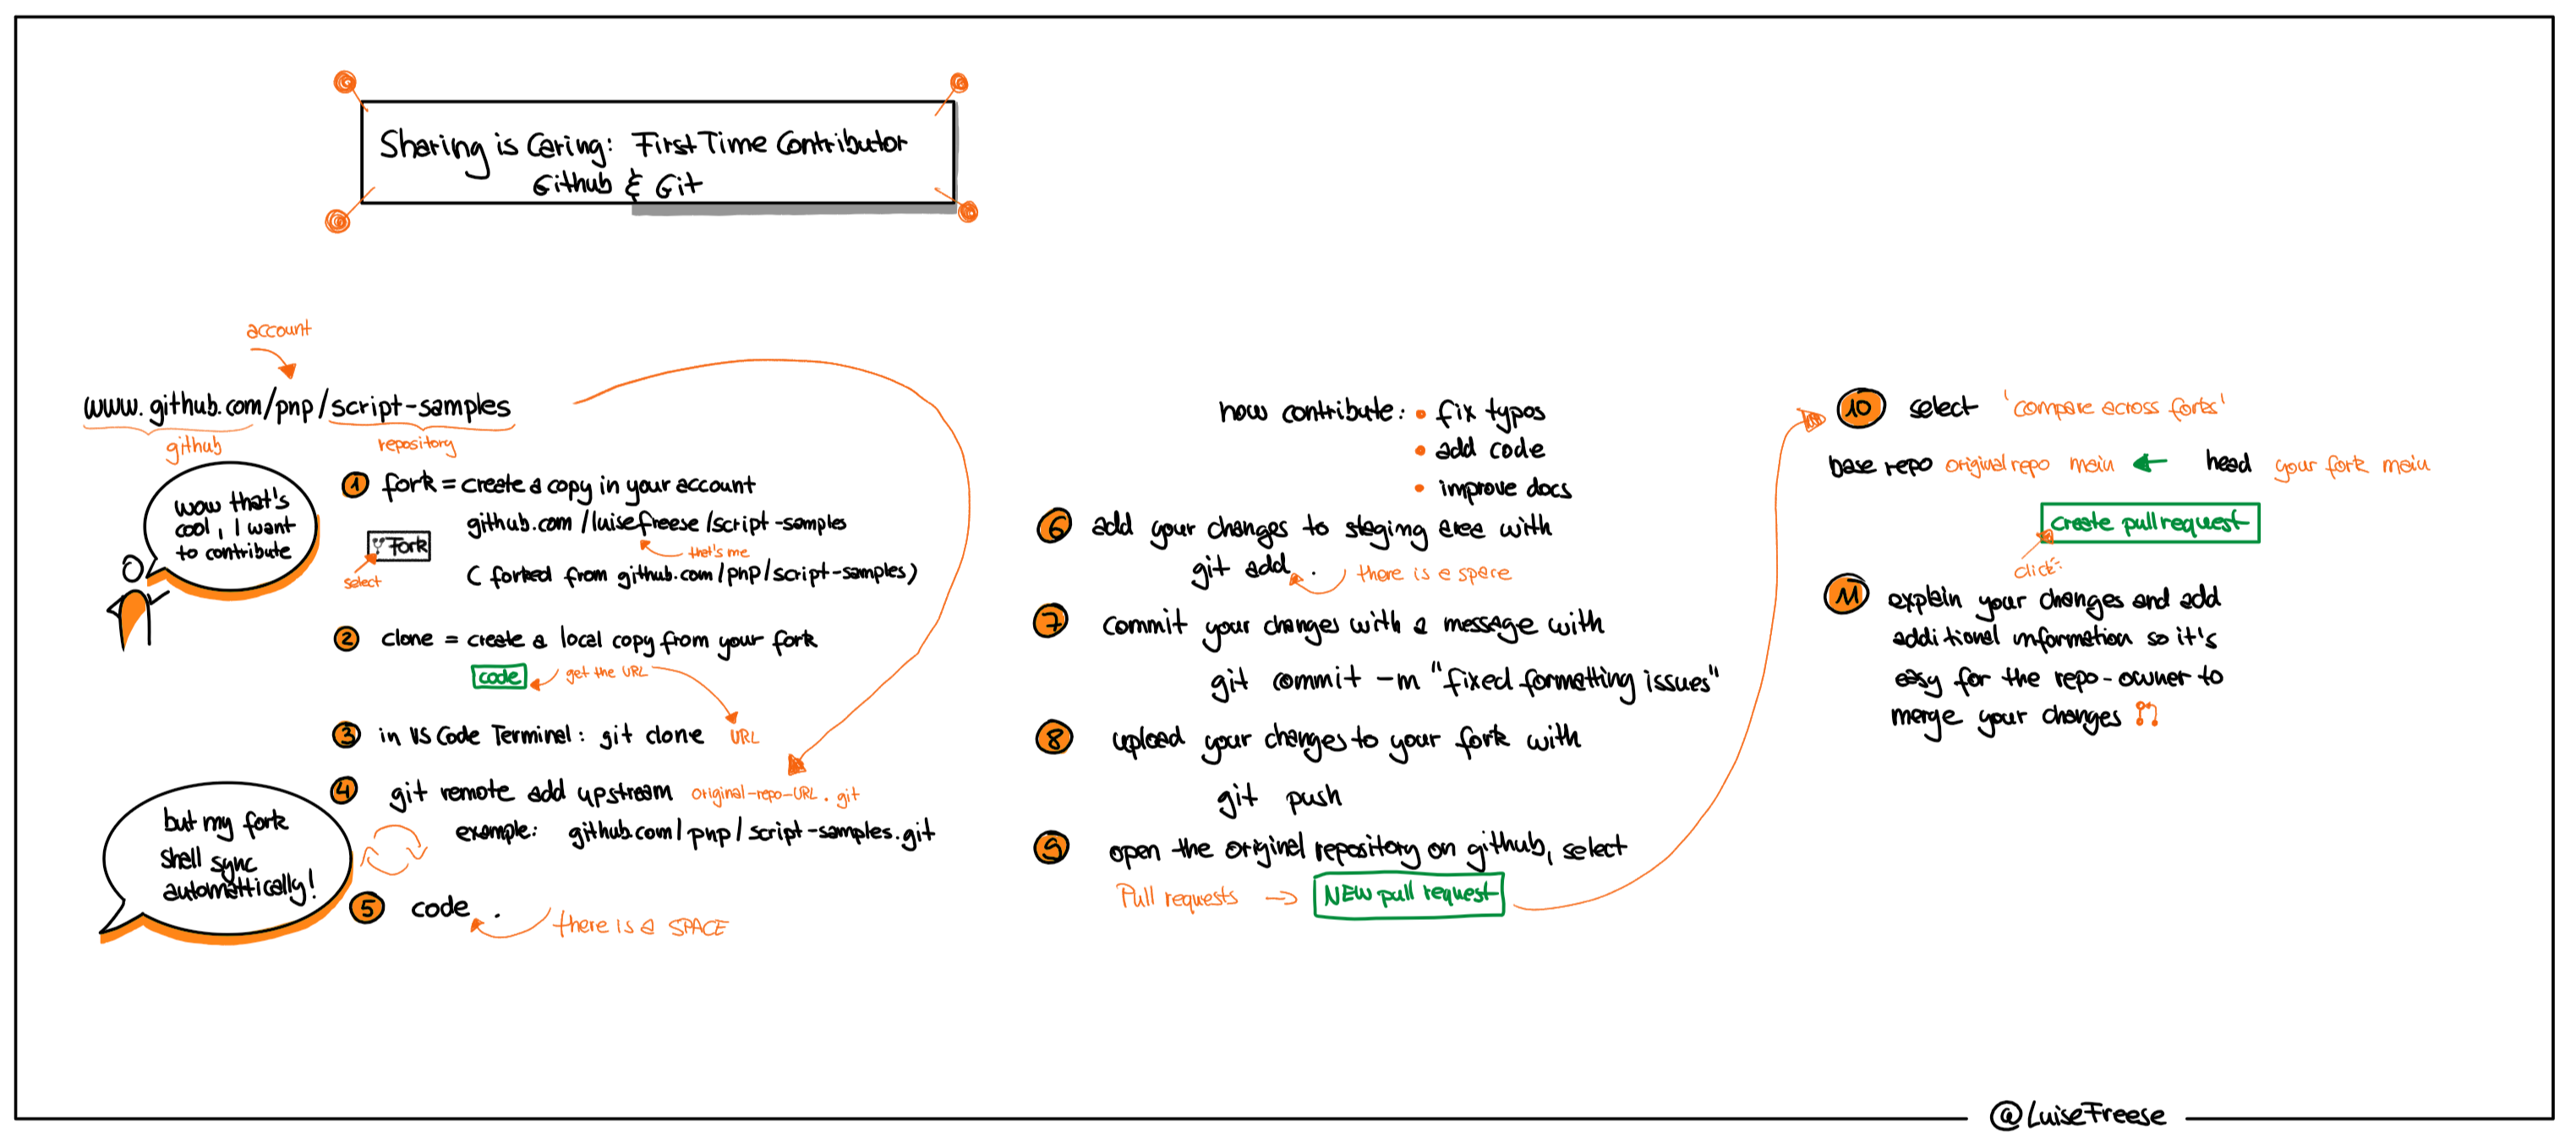 Sharing is Caring: First Time Contributor
Github & Git
account
www.github.com/pnp/script-samples
github
repository
wow that's
cool, I want
to contribute
1 fork = create a copy in your account
github.com/luisefreese/script-samples
Fork
that's me
select
( forked from github.com/pnp/script-samples)
2 clone = create a local copy from your fork
code
get the URL
3 in VS Code Terminal: git clone URL
4 git remote add upstream original-repo-URL.git
example: github.com/pnp/script-samples.git
but my fork
shall sync
automattically!
5 code .
there is a SPACE
now contribute: • fix typos
• add code
• improve docs
6 add your changes to staging area with
git add .
there is a space
7 commit your changes with a message with
git commit -m "fixed formatting issues"
8 upload your changes to your fork with
git push
9 open the original repository on github, select
Pull requests → NEW pull request
10 select 'compare across forks'
base repo original repo main ← head your fork main
create pull request
click
11 explain your changes and add
additional information so it's
easy for the repo-owner to
merge your changes
@LuiseFreese